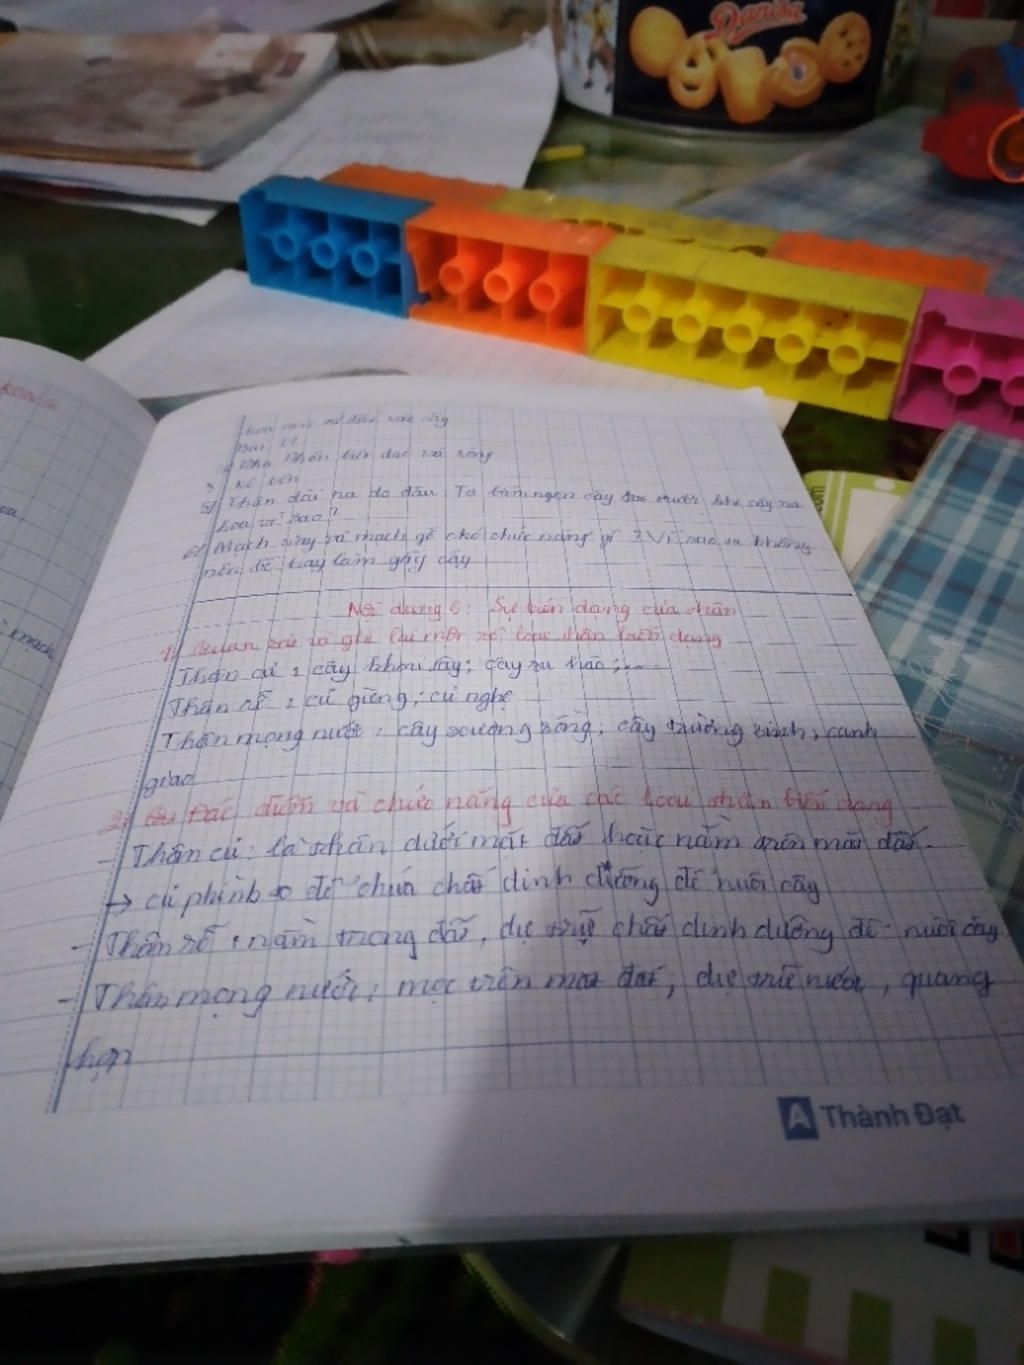 Danisa
mạch
Bài 11
Kể tên
5/ Thân dài ra do đâu. Ta bấm ngọn cây trước khi cây ra
hoa vì sao?
6/ Mạch rây và mạch gỗ chó chức năng gì? Vì sao ta không
nên bẻ hay làm gãy cây
Nội dung 6: Sự biến dạng của thân
1/ Quan sát và ghi lại một số loại thân biến dạng
Thân củ: cây khoai tây; cây su hào;....
Thân rễ: củ giềng; củ nghệ
Thân mọng nước: cây xương rồng; cây trường sinh; cành
giao
2/ Đặc điểm và chức năng của các loại thân biến dạng
- Thân củ: là thân dưới mặt đất hoặc nằm trên mặt đất.
→ củ phình to để chứa chất dinh dưỡng để nuôi cây
- Thân rễ: nằm trong đất, dự trữ chất dinh dưỡng để nuôi cây
- Thân mọng nước: mọc trên mặt đất; dự trữ nước, quang
hợp
A Thành Đạt